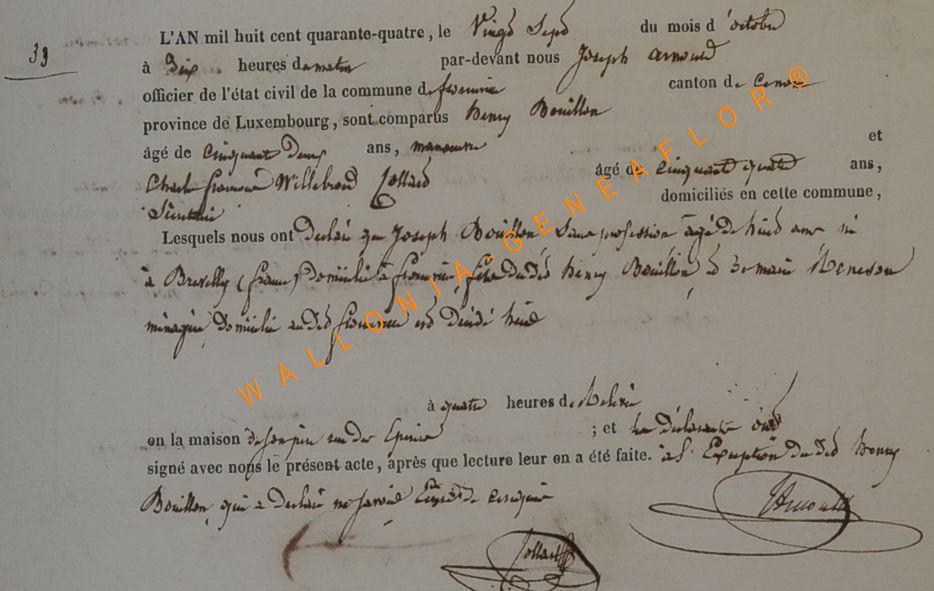 33
L'AN mil huit cent quarante-quatre, le Vingt Sept du mois d'octobre
à Dix heures du matin par-devant nous Joseph Arnould
officier de l'état civil de la commune de canton de
province de Luxembourg, sont comparus Henry Bouillon
âgé de Cinquant Deux ans, manoeuvre et
Charle Willebrod Collard âgé de Cinquant quatre ans,
domiciliés en cette commune,
Lesquels nous ont déclaré que Joseph Bouillon Sans profession agé de huit ans né
à Brevilly (france) domicilié à fils dudit Henry Bouillon &
ménagère, domicilié audit est décédé hier
à quatre heures de Relevée
en la maison de son père ; et les déclarants ont
signé avec nous le présent acte, après que lecture leur en a été faite. à l'Exception dudit Henry
Bouillon, qui a déclaré ne savoir
Arnould
Collard
WALLONIA-GENEAFLOR®